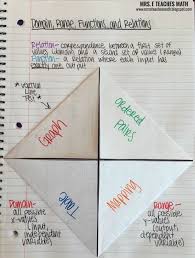 MRS. E TEACHES MATH
Domain, Range, Functions, and Relations
Relation- correspondence between a first set of
values (domain) and a second set of values (range)
Function- a relation where each input has
exactly one output
* VERTICAL
LINE
TEST
Graph
Ordered
Pairs
Table
Mapping
Domain-
all possible
x-values
(input,
independent
variable)
Range-
all possible
y-values
(output,
dependent
variable)